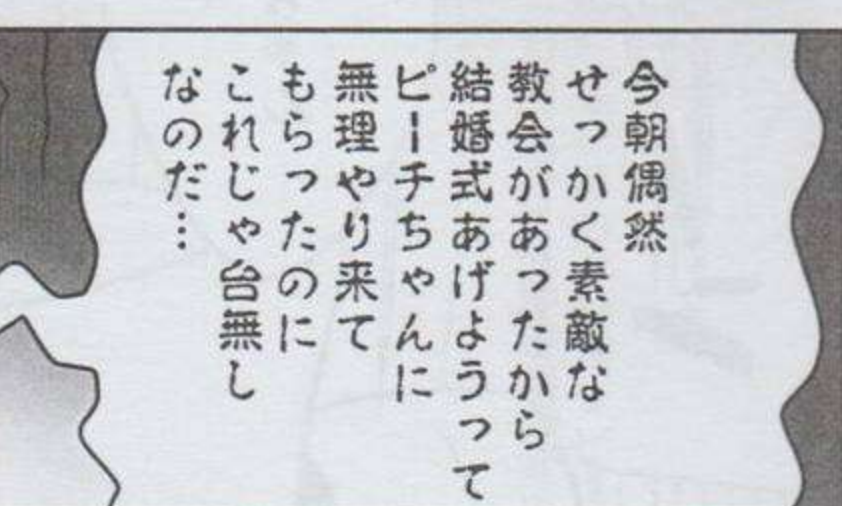 今朝偶然
せっかく素敵な
教会があったから
結婚式あげようって
ピーチちゃんに
無理やり来て
もらったのに
これじゃ台無し
なのだ…